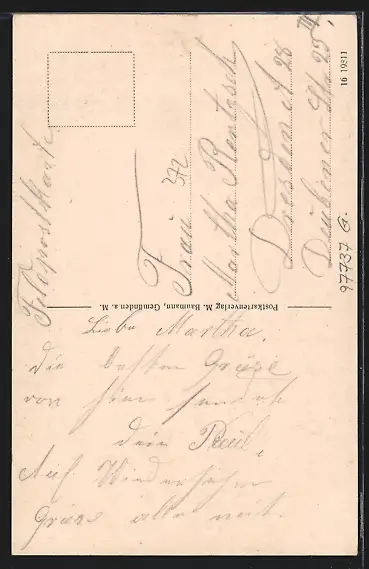 Feldpostkarte
Frau
Martha Rentzsch
Dresden A 28
Deubener Str 25 III
16 19811
97737 G.
Postkartenverlag M. Baumann, Gemünden a. M.
Liebe Martha,
die besten Grüße
von hier sendet
dein Paul,
Auf Wiedersehen
Grüse alle mit.